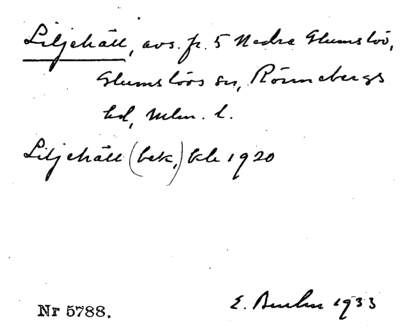 Liljehäll, avs. fr. 5 Nedra Glumslöv,
Glumslövs sn, Rönnebergs
hd, Mlm. l.
Liljehäll (bek.) kb 1920
Nr 5788. E. 1933